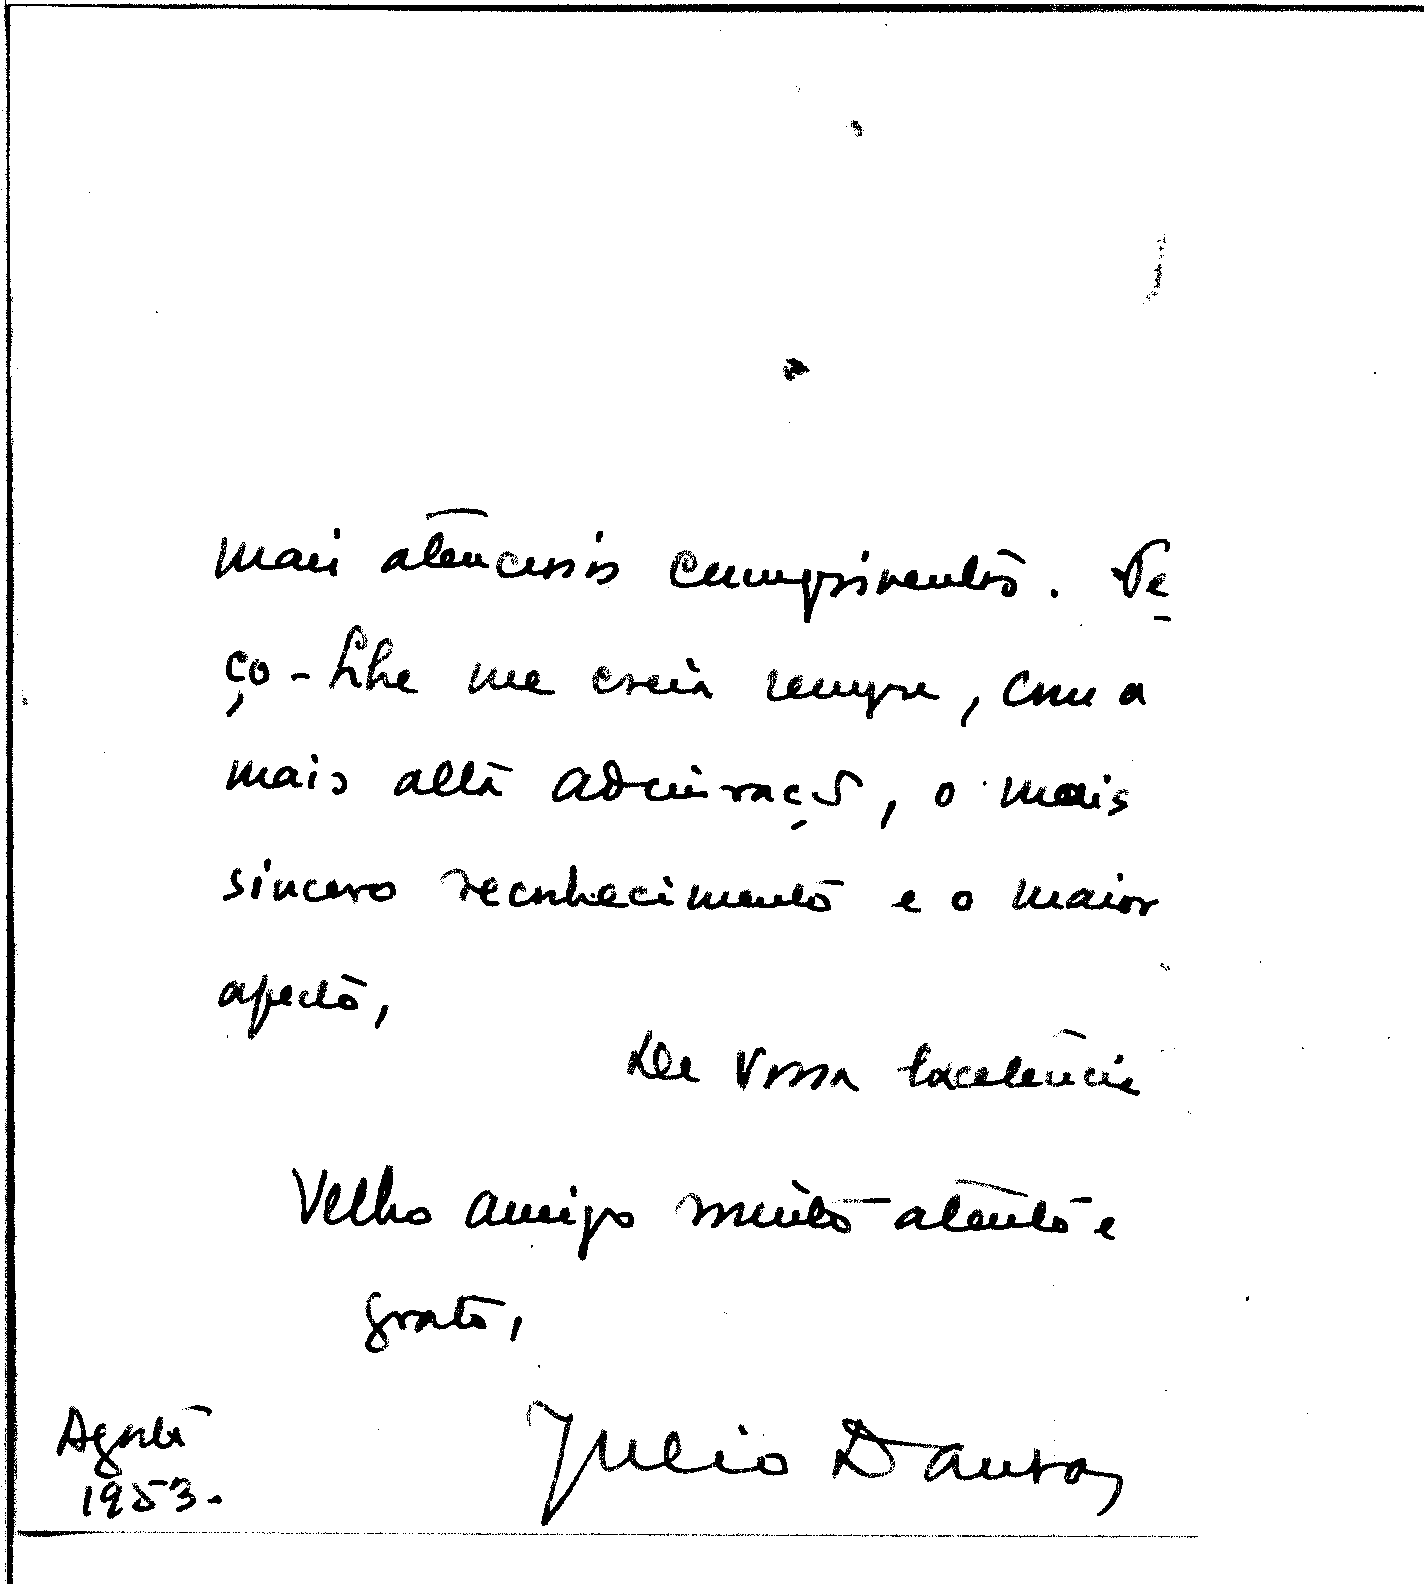 mais atenciosos cumprimentos. Pe
ço-lhe me creia sempre, com a
mais alta admiração, o mais
sincero reconhecimento e o maior
afecto,
De Vossa Excelência
Velho amigo muito atento e
grato,
Julio Dantas
Agosto
1953.